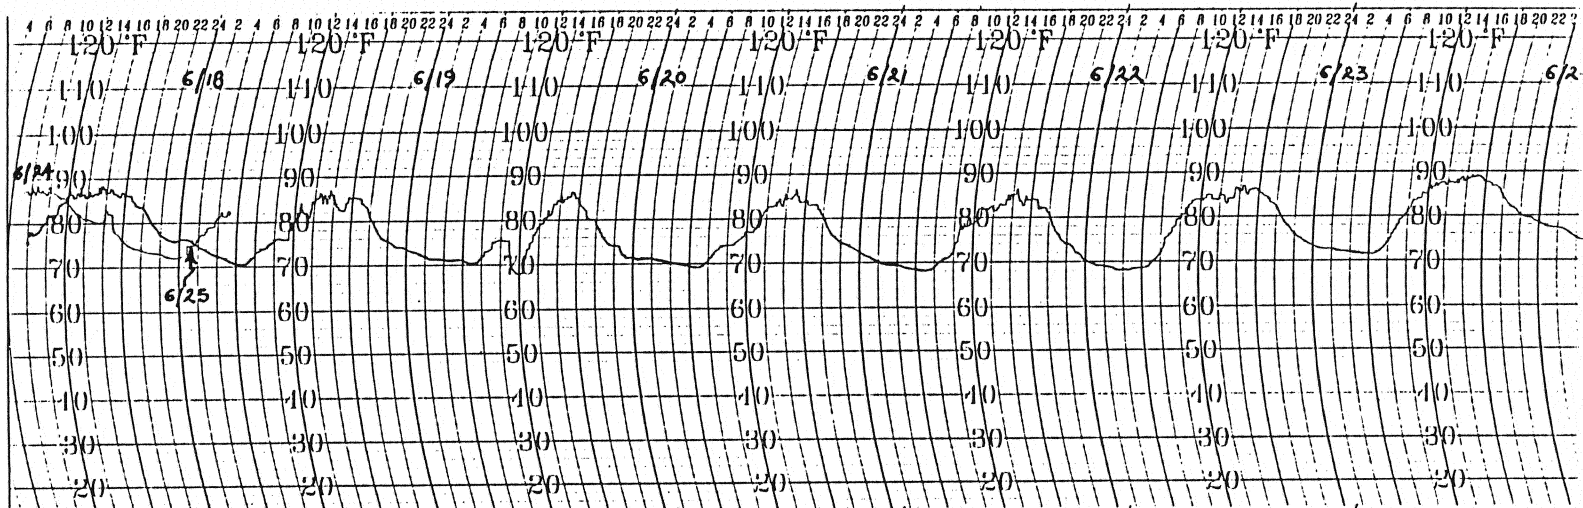 4 6 8 10 12 14 16 18 20 22 24 2 4 6 8 10 12 14 16 18 20 22 24 2 4 6 8 10 12 14 16 18 20 22 24 2 4 6 8 10 12 14 16 18 20 22 24 2 4 6 8 10 12 14 16 18 20 22 24 2 4 6 8 10 12 14 16 18 20 22 24 2 4 6 8 10 12 14 16 18 20 22
120 °F 120 °F 120 °F 120 °F 120 °F 120 °F 120 °F
6/18 6/19 6/20 6/21 6/22 6/23 6/2
110 110 110 110 110 110 110
100 100 100 100 100 100 100
6/24 90 90 90 90 90 90 90
80 80 80 80 80 80 80
70 70 70 70 70 70 70
6/25
60 60 60 60 60 60 60
50 50 50 50 50 50 50
40 40 40 40 40 40 40
30 30 30 30 30 30 30
20 20 20 20 20 20 20